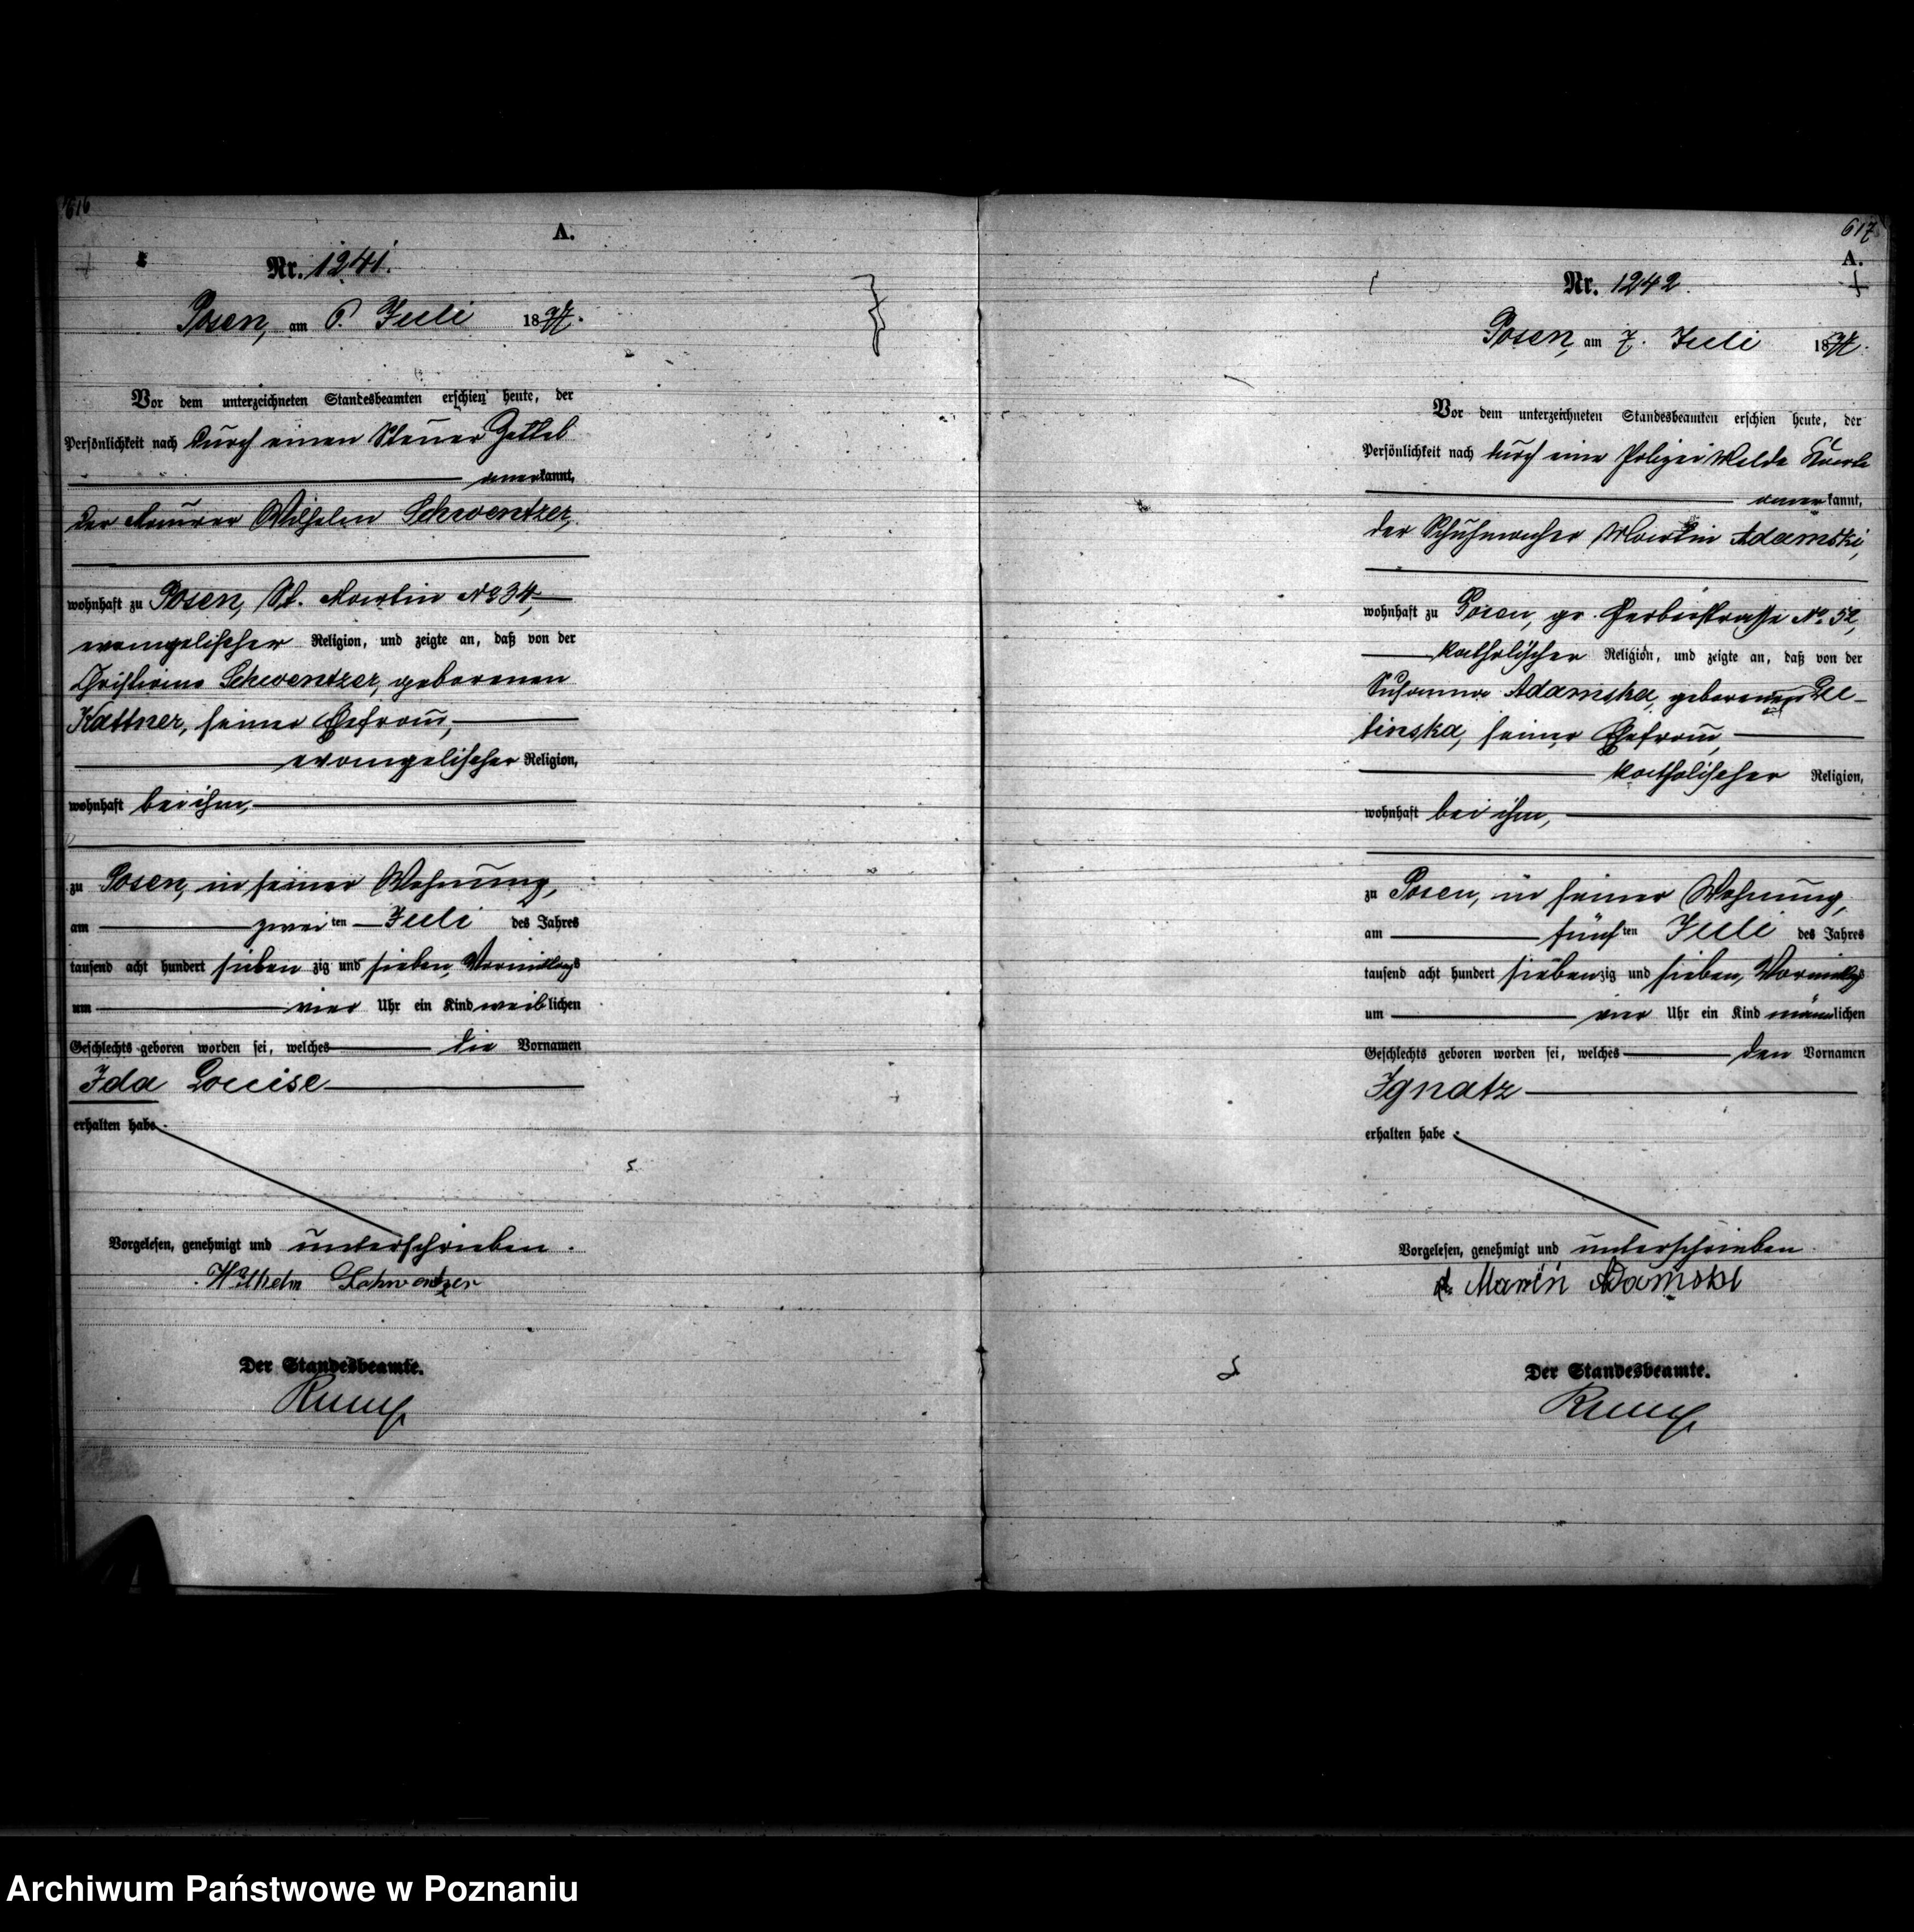 616
A.
Nr. 1241.
Posen, am 6. Juli 1877.
Vor dem unterzeichneten Standesbeamten erschien heute, der
Persönlichkeit nach durch einen Steuer Zettel
anerkannt,
der Maurer Wilhelm Schwentzer,
wohnhaft zu Posen, St. Martin No 34,
evangelischer Religion, und zeigte an, daß von der
Christiane Schwentzer, geborenen
Kattner, seiner Ehefrau,
evangelischer Religion,
wohnhaft bei ihm,
zu Posen, in seiner Wohnung,
am zweiten Juli des Jahres
tausend acht hundert siebenzig und sieben, Vormittags
um vier Uhr ein Kind weiblichen
Geschlechts geboren worden sei, welches die Vornamen
Ida Louise
erhalten habe.
Vorgelesen, genehmigt und unterschrieben.
Wilhelm Schwentzer
Der Standesbeamte.
617
A.
Nr. 1242.
Posen, am 7. Juli 1877.
Vor dem unterzeichneten Standesbeamten erschien heute, der
Persönlichkeit nach durch eine Polizei Melde Karte
anerkannt,
der Schuhmacher Martin Adamski,
wohnhaft zu Posen, gr. Gerberstrasse No. 52,
katholischer Religion, und zeigte an, daß von der
Susanna Adamska, geborenen
seiner Ehefrau,
katholischer Religion,
wohnhaft bei ihm,
zu Posen, in seiner Wohnung,
am fünften Juli des Jahres
tausend acht hundert siebenzig und sieben, Vormittags
um vier Uhr ein Kind männlichen
Geschlechts geboren worden sei, welches den Vornamen
Ignatz
erhalten habe.
Vorgelesen, genehmigt und unterschrieben.
Marcin Adamski
Der Standesbeamte.
Archiwum Państwowe w Poznaniu